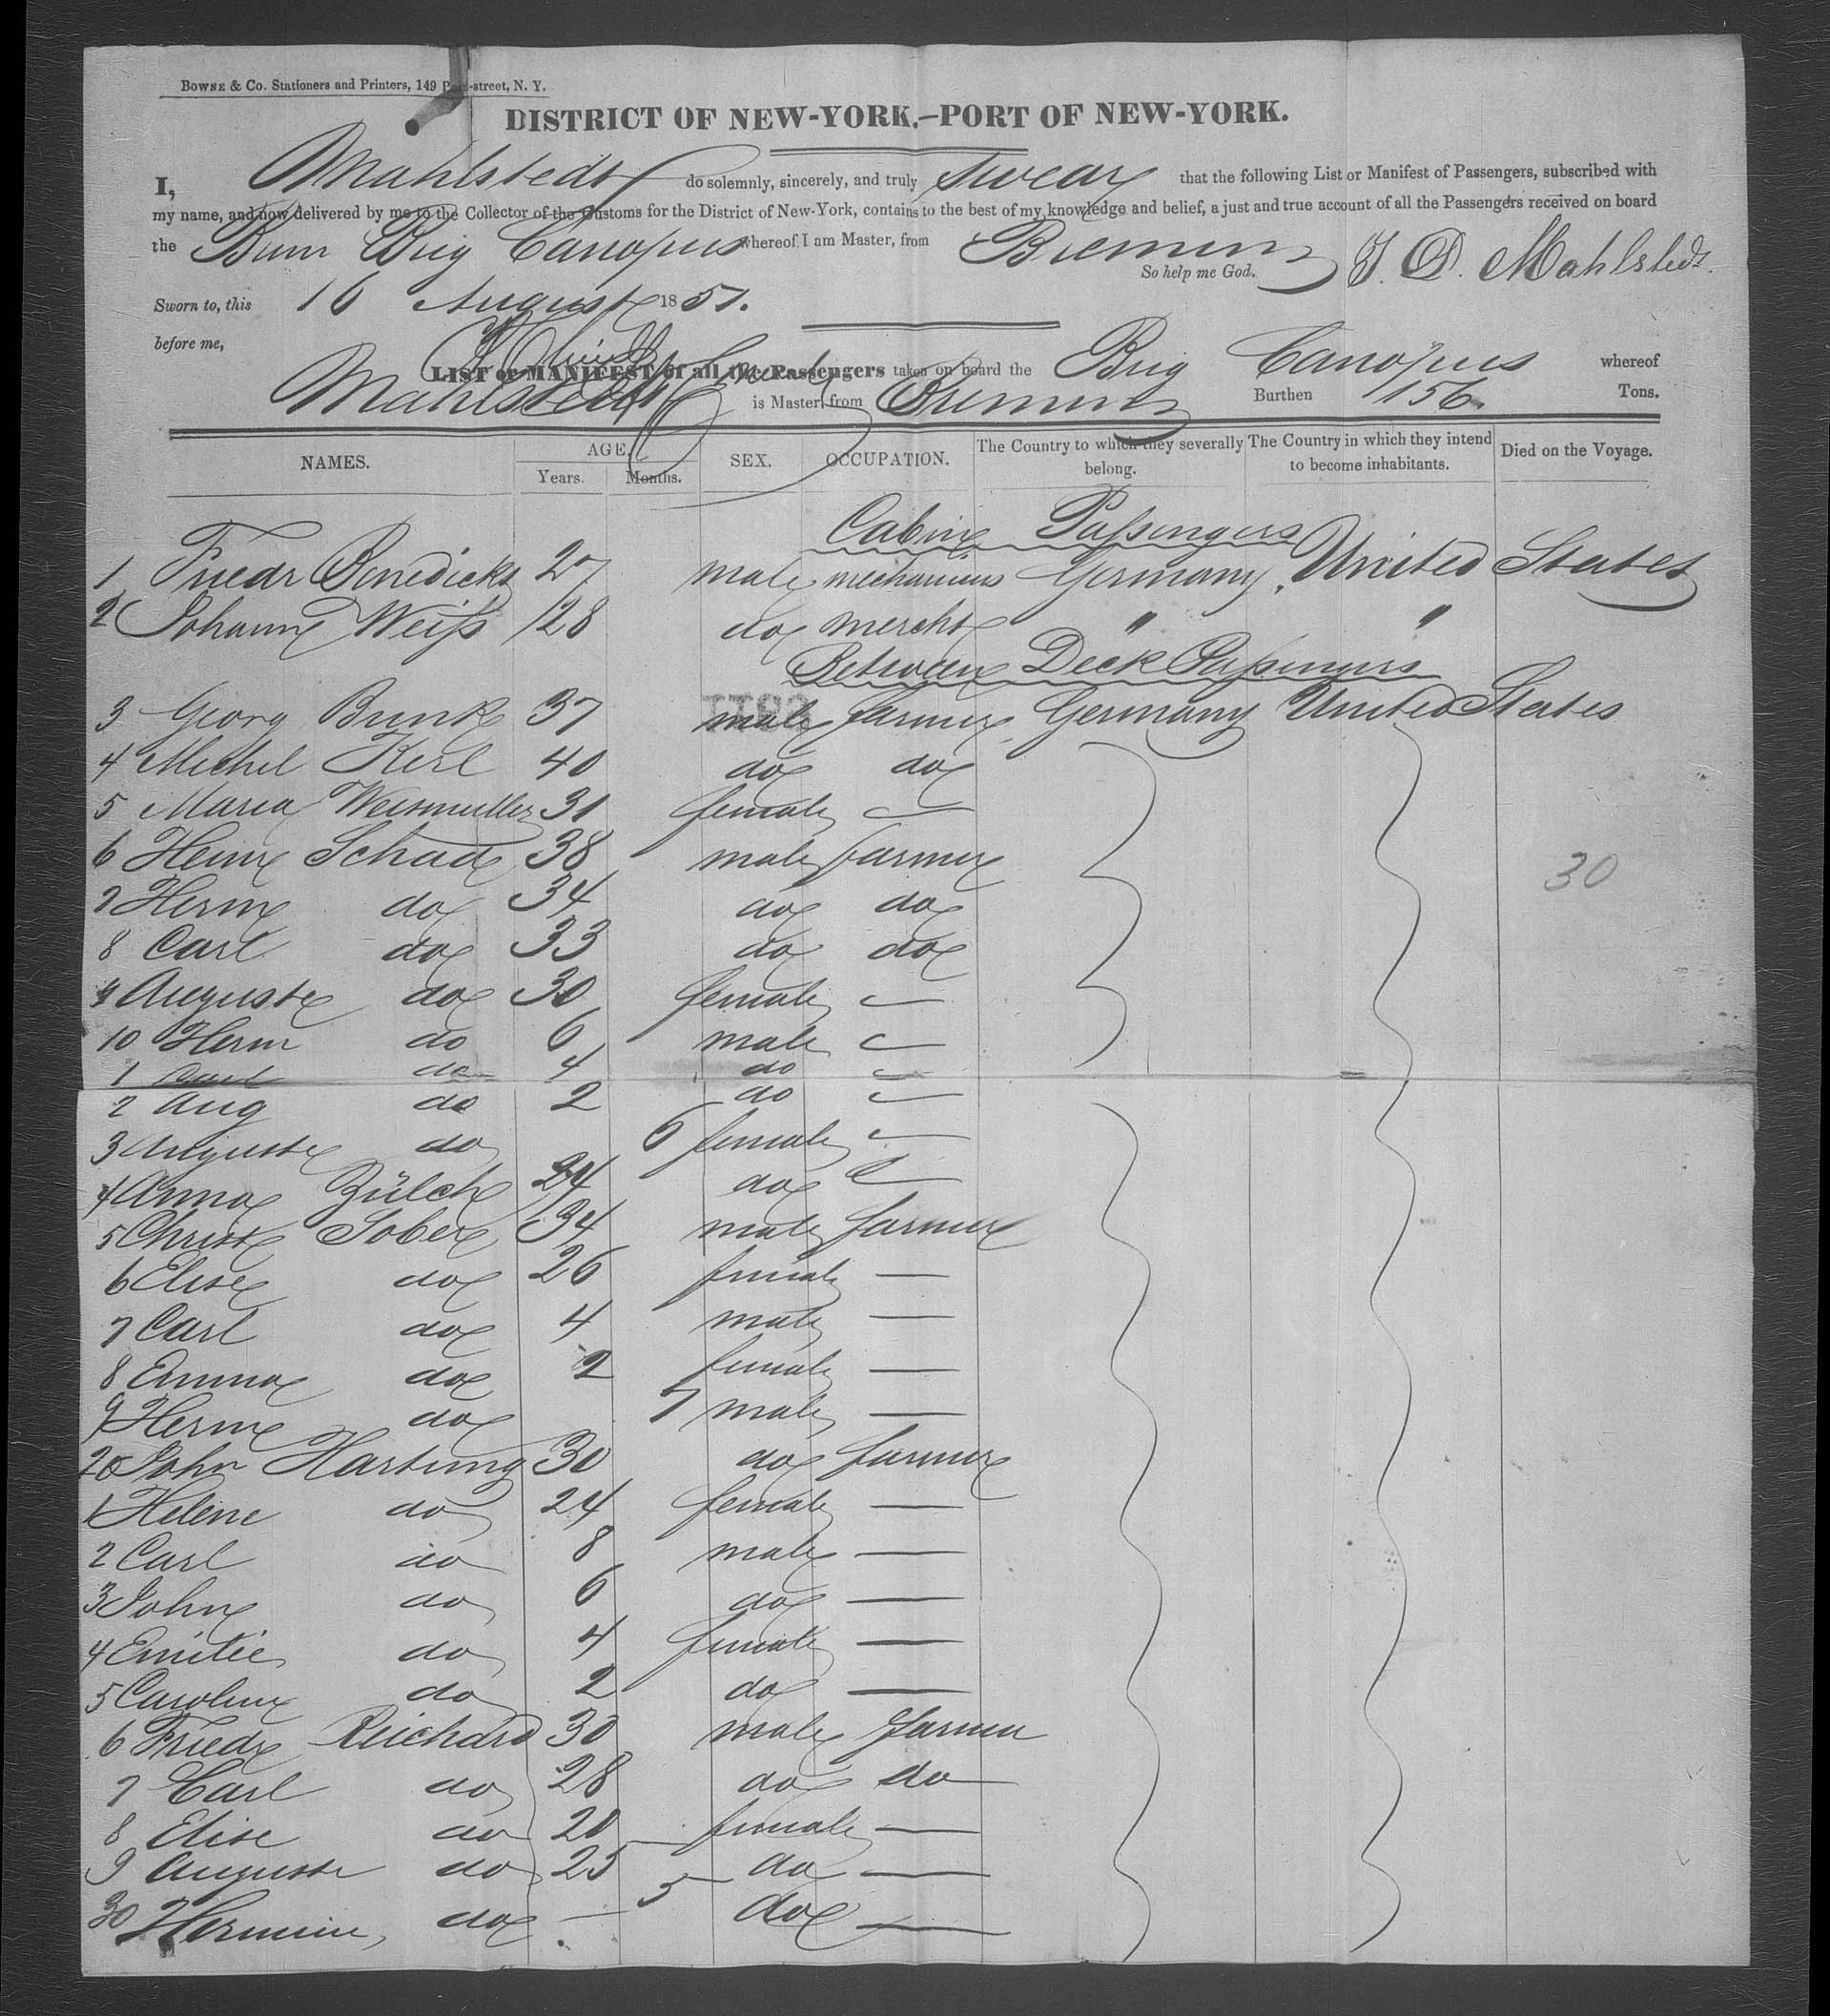 BOWNE & Co. Stationers and Printers, 149 Pearl-street, N. Y.
DISTRICT OF NEW-YORK.—PORT OF NEW-YORK.
I, Mahlstedt do solemnly, sincerely, and truly swear that the following List or Manifest of Passengers, subscribed with
my name, and now delivered by me to the Collector of the Customs for the District of New-York, contains to the best of my knowledge and belief, a just and true account of all the Passengers received on board
the Brem Brig Canopus whereof I am Master, from Bremen
So help me God. J. D. Mahlstedt.
Sworn to, this 16 August 1851.
before me,
LIST or MANIFEST of all the Passengers taken on board the Brig Canopus whereof
Mahlstedt is Master, from Bremen Burthen 156. Tons.
NAMES. AGE. Years. Months. SEX. OCCUPATION. The Country to which they severally belong. The Country in which they intend to become inhabitants. Died on the Voyage.
Cabin Passengers
1 Friedr Benedicks 27 male mechanicus Germany United States
2 Johann Weiss 28 do mercht " "
Between Deck Passengers
3 Georg Brunk 37 male farmer Germany United States
4 Michel Kerl 40 do do
5 Maria Weismuller 31 female —
6 Heinr Schade 38 male farmer
7 Herm do 34 do do
30
8 Carl do 33 do do
9 Auguste do 30 female —
10 Herm do 6 male —
1 Carl do 4 do —
2 Aug do 2 do —
3 Auguste do 6 female —
4 Anna Zülch 24 do —
5 Christ Sober 34 male farmer
6 Elise do 26 female —
7 Carl do 4 male —
8 Emma do 2 female —
9 Herm do 7 male —
20 John Hartung 30 do farmer
1 Helene do 24 female —
2 Carl do 8 male —
3 John do 6 do —
4 Emilie do 4 female —
5 Caroline do 2 do —
6 Friedr Reichard 30 male farmer
7 Carl do 28 do do
8 Elise do 20 female —
9 Auguste do 25 do —
30 Hermine do — 5 do —